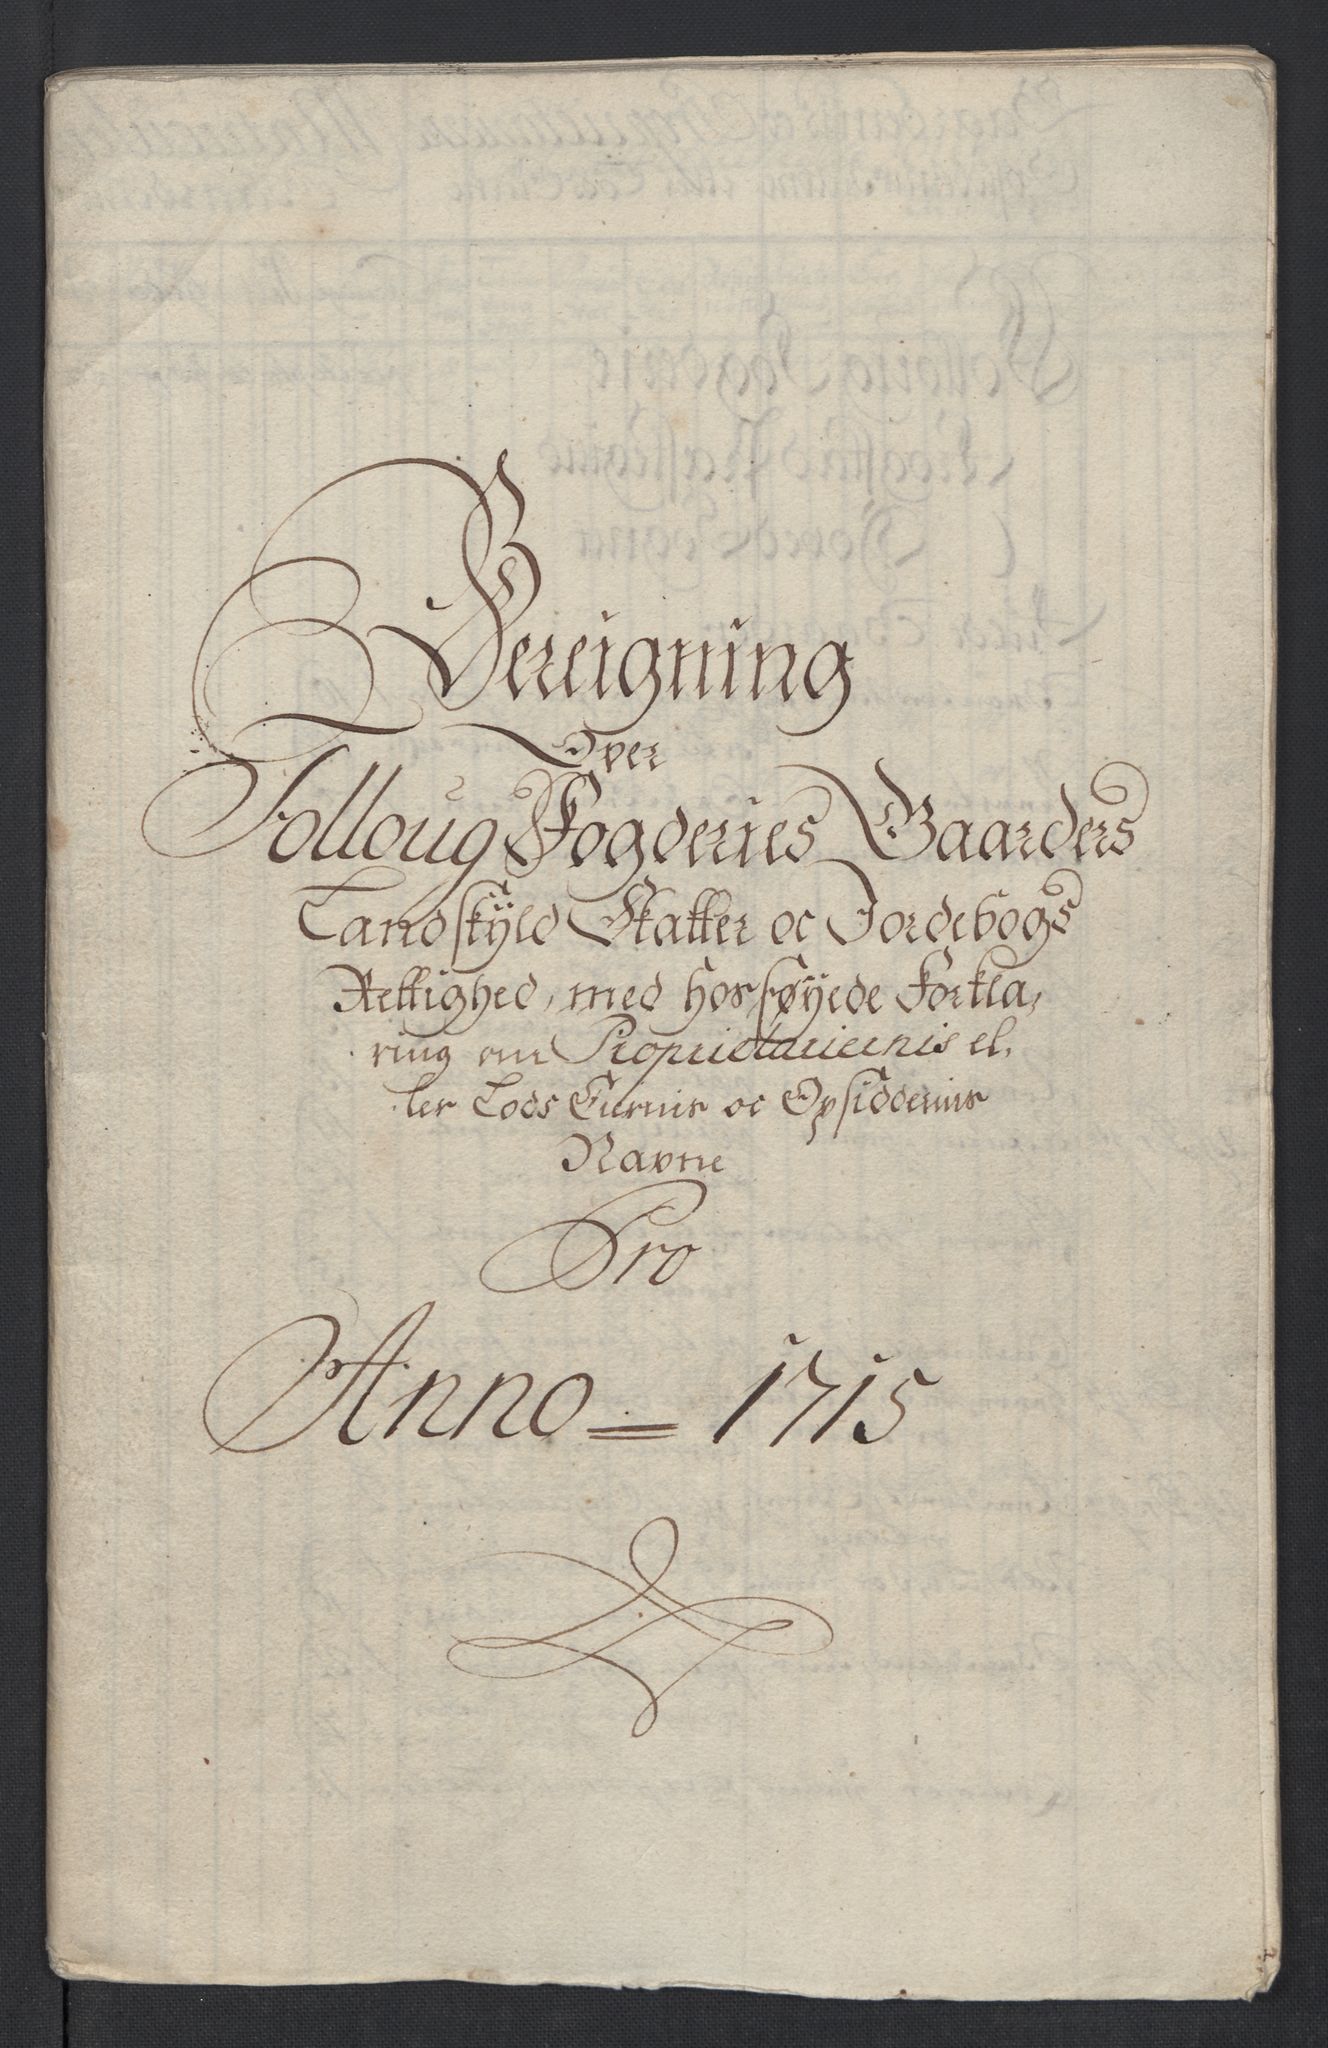 Bereigning
Over
Folloug Fogderies Gaarders
Landskyld Skatter oc Jordebogs
Rettighed, med hosføyede Forkla,
ring om Proprietariernis el,
ler Lods Eiernis oc Opsiddernis
Navne
Pro
Anno = 1715